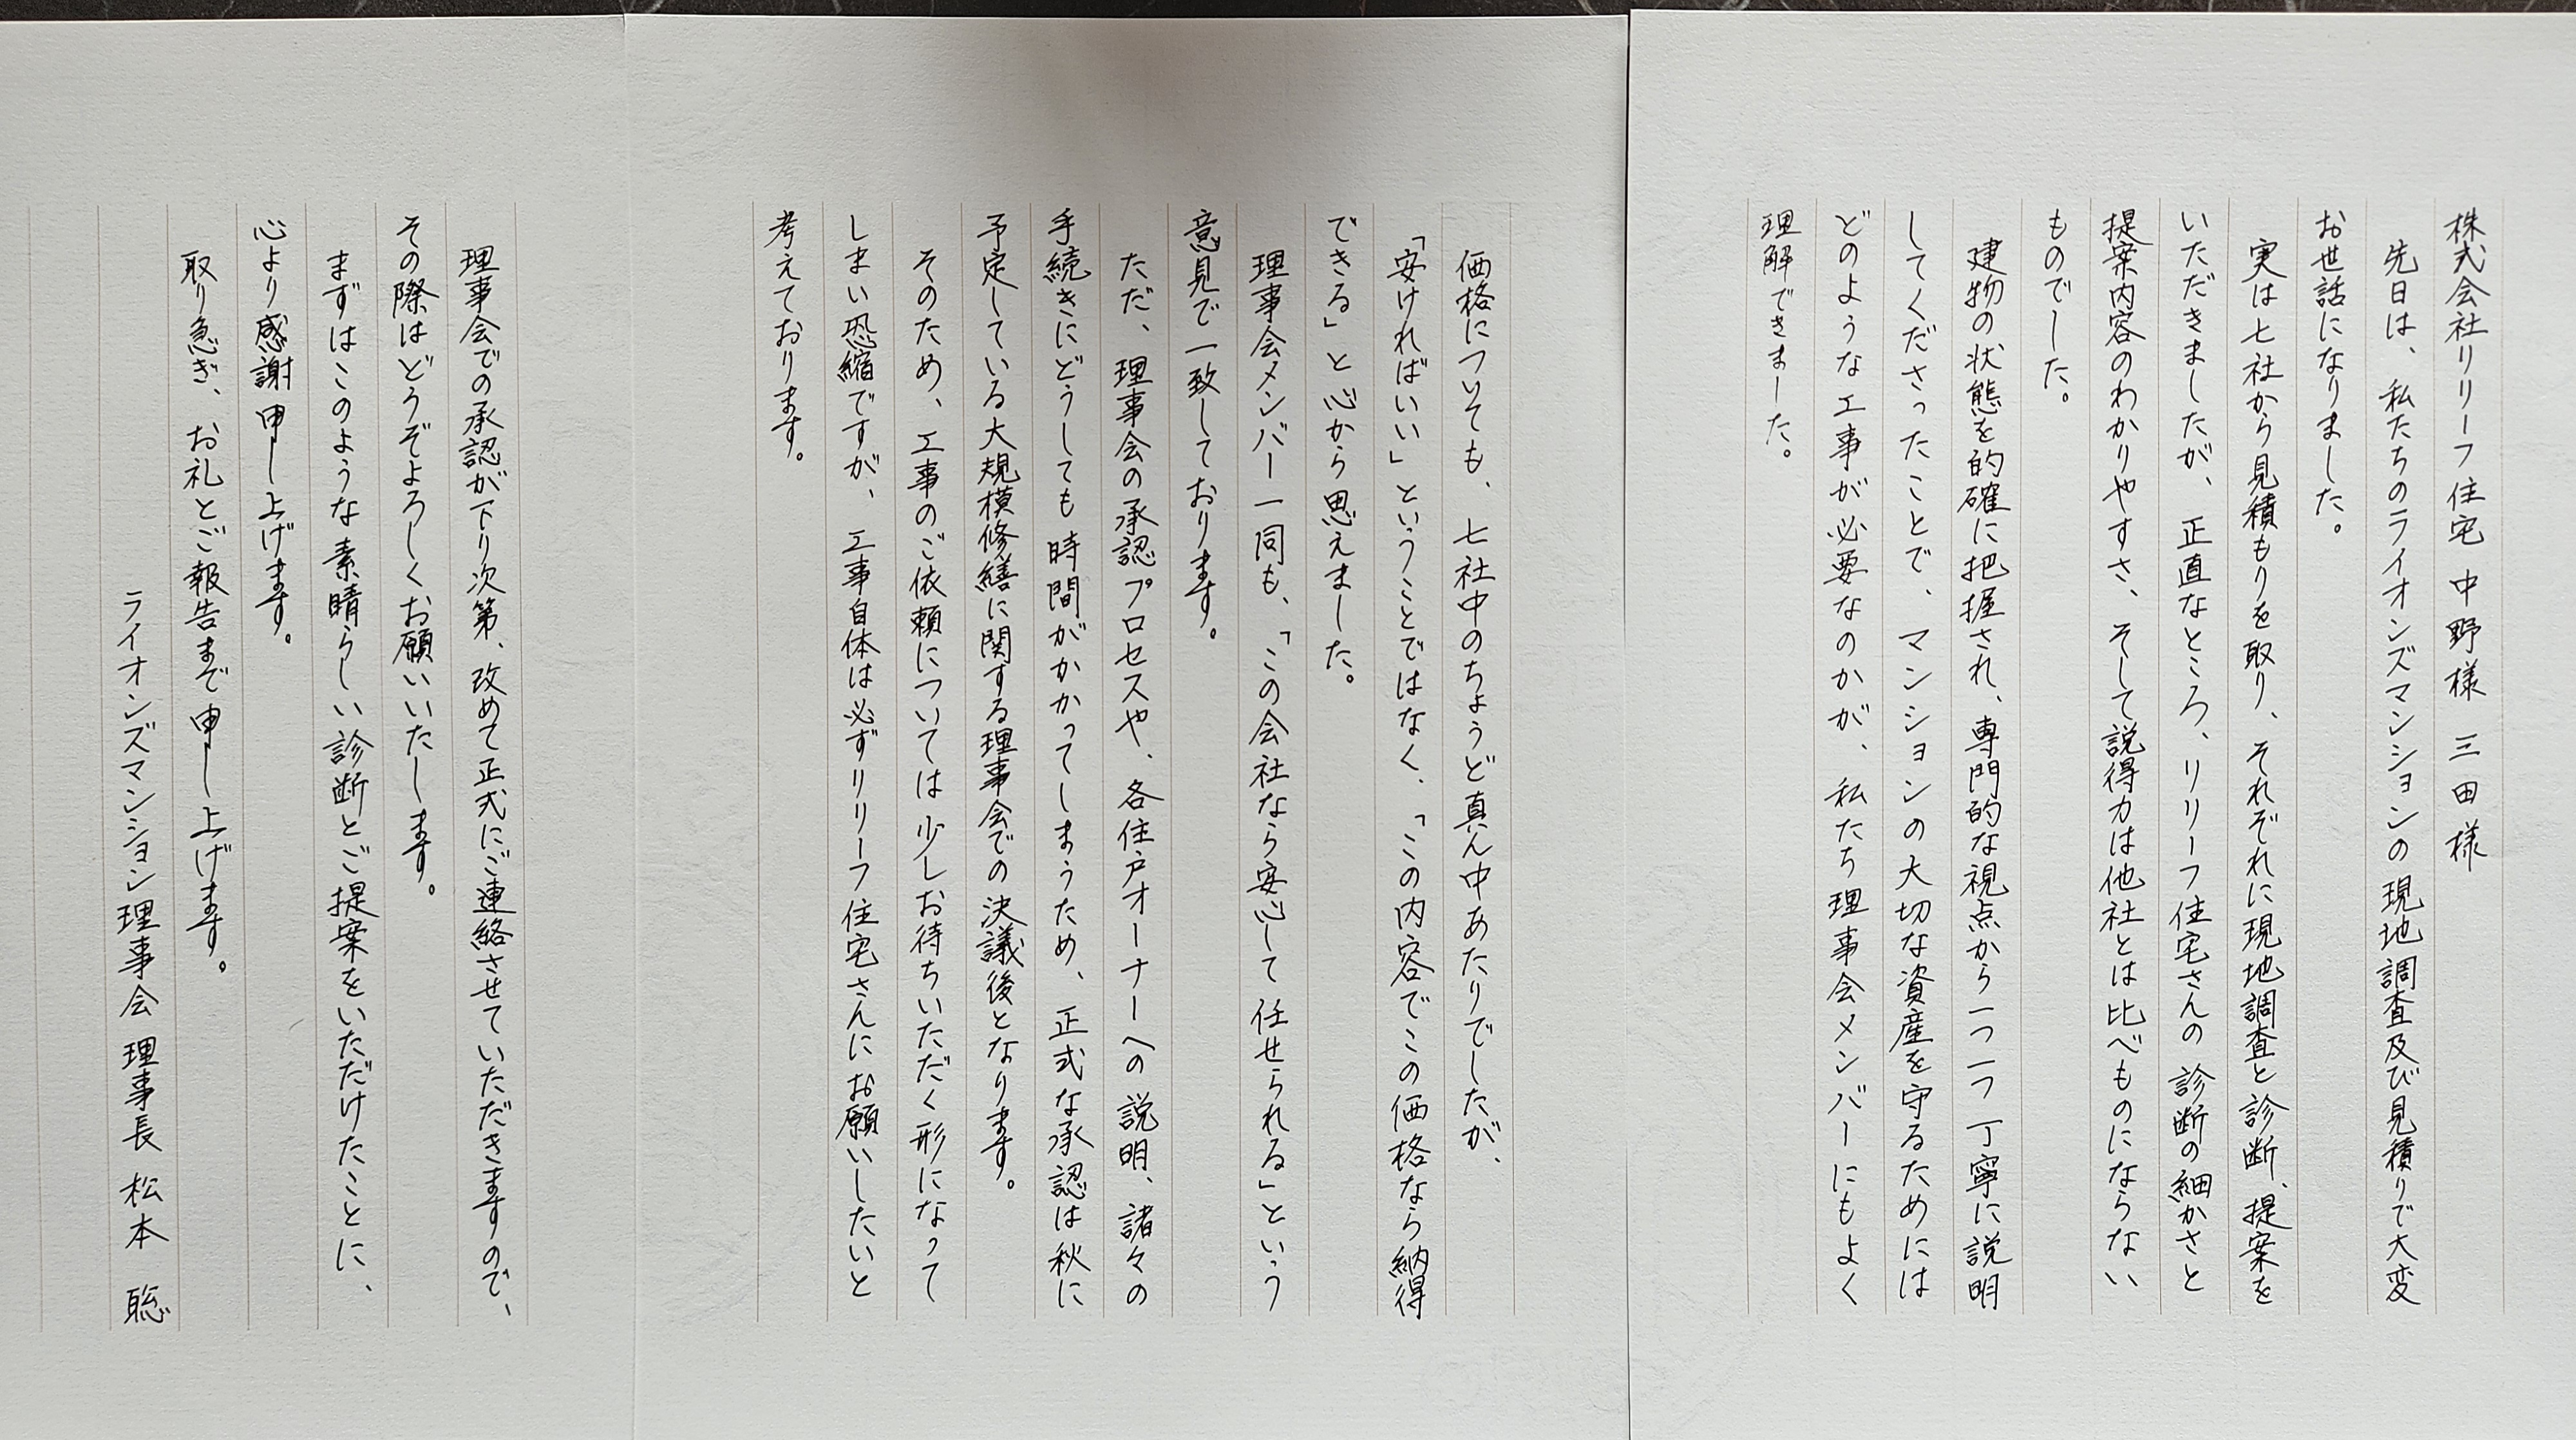 株式会社リリーフ住宅 中野様 三田様
先日は、私たちのライオンズマンションの現地調査及び見積りで大変
お世話になりました。
実は七社から見積もりを取り、それぞれに現地調査と診断、提案を
いただきましたが、正直なところ、リリーフ住宅さんの診断の細かさと
提案内容のわかりやすさ、そして説得力は他社とは比べものにならない
ものでした。
建物の状態を的確に把握され、専門的な視点から一つ一つ丁寧に説明
してくださったことで、マンションの大切な資産を守るためには
どのような工事が必要なのかが、私たち理事会メンバーにもよく
理解できました。
価格についても、七社中のちょうど真ん中あたりでしたが、
「安ければいい」ということではなく、「この内容でこの価格なら納得
できる」と心から思えました。
理事会メンバー一同も、「この会社なら安心して任せられる」という
意見で一致しております。
ただ、理事会の承認プロセスや、各住戸オーナーへの説明、諸々の
手続きにどうしても時間がかかってしまうため、正式な承認は秋に
予定している大規模修繕に関する理事会での決議後となります。
そのため、工事のご依頼については少しお待ちいただく形になって
しまい恐縮ですが、工事自体は必ずリリーフ住宅さんにお願いしたいと
考えております。
理事会での承認が下り次第、改めて正式にご連絡させていただきますので、
その際はどうぞよろしくお願いいたします。
まずはこのような素晴らしい診断とご提案をいただけたことに、
心より感謝申し上げます。
取り急ぎ、お礼とご報告まで申し上げます。
ライオンズマンション理事会 理事長 松本 聡